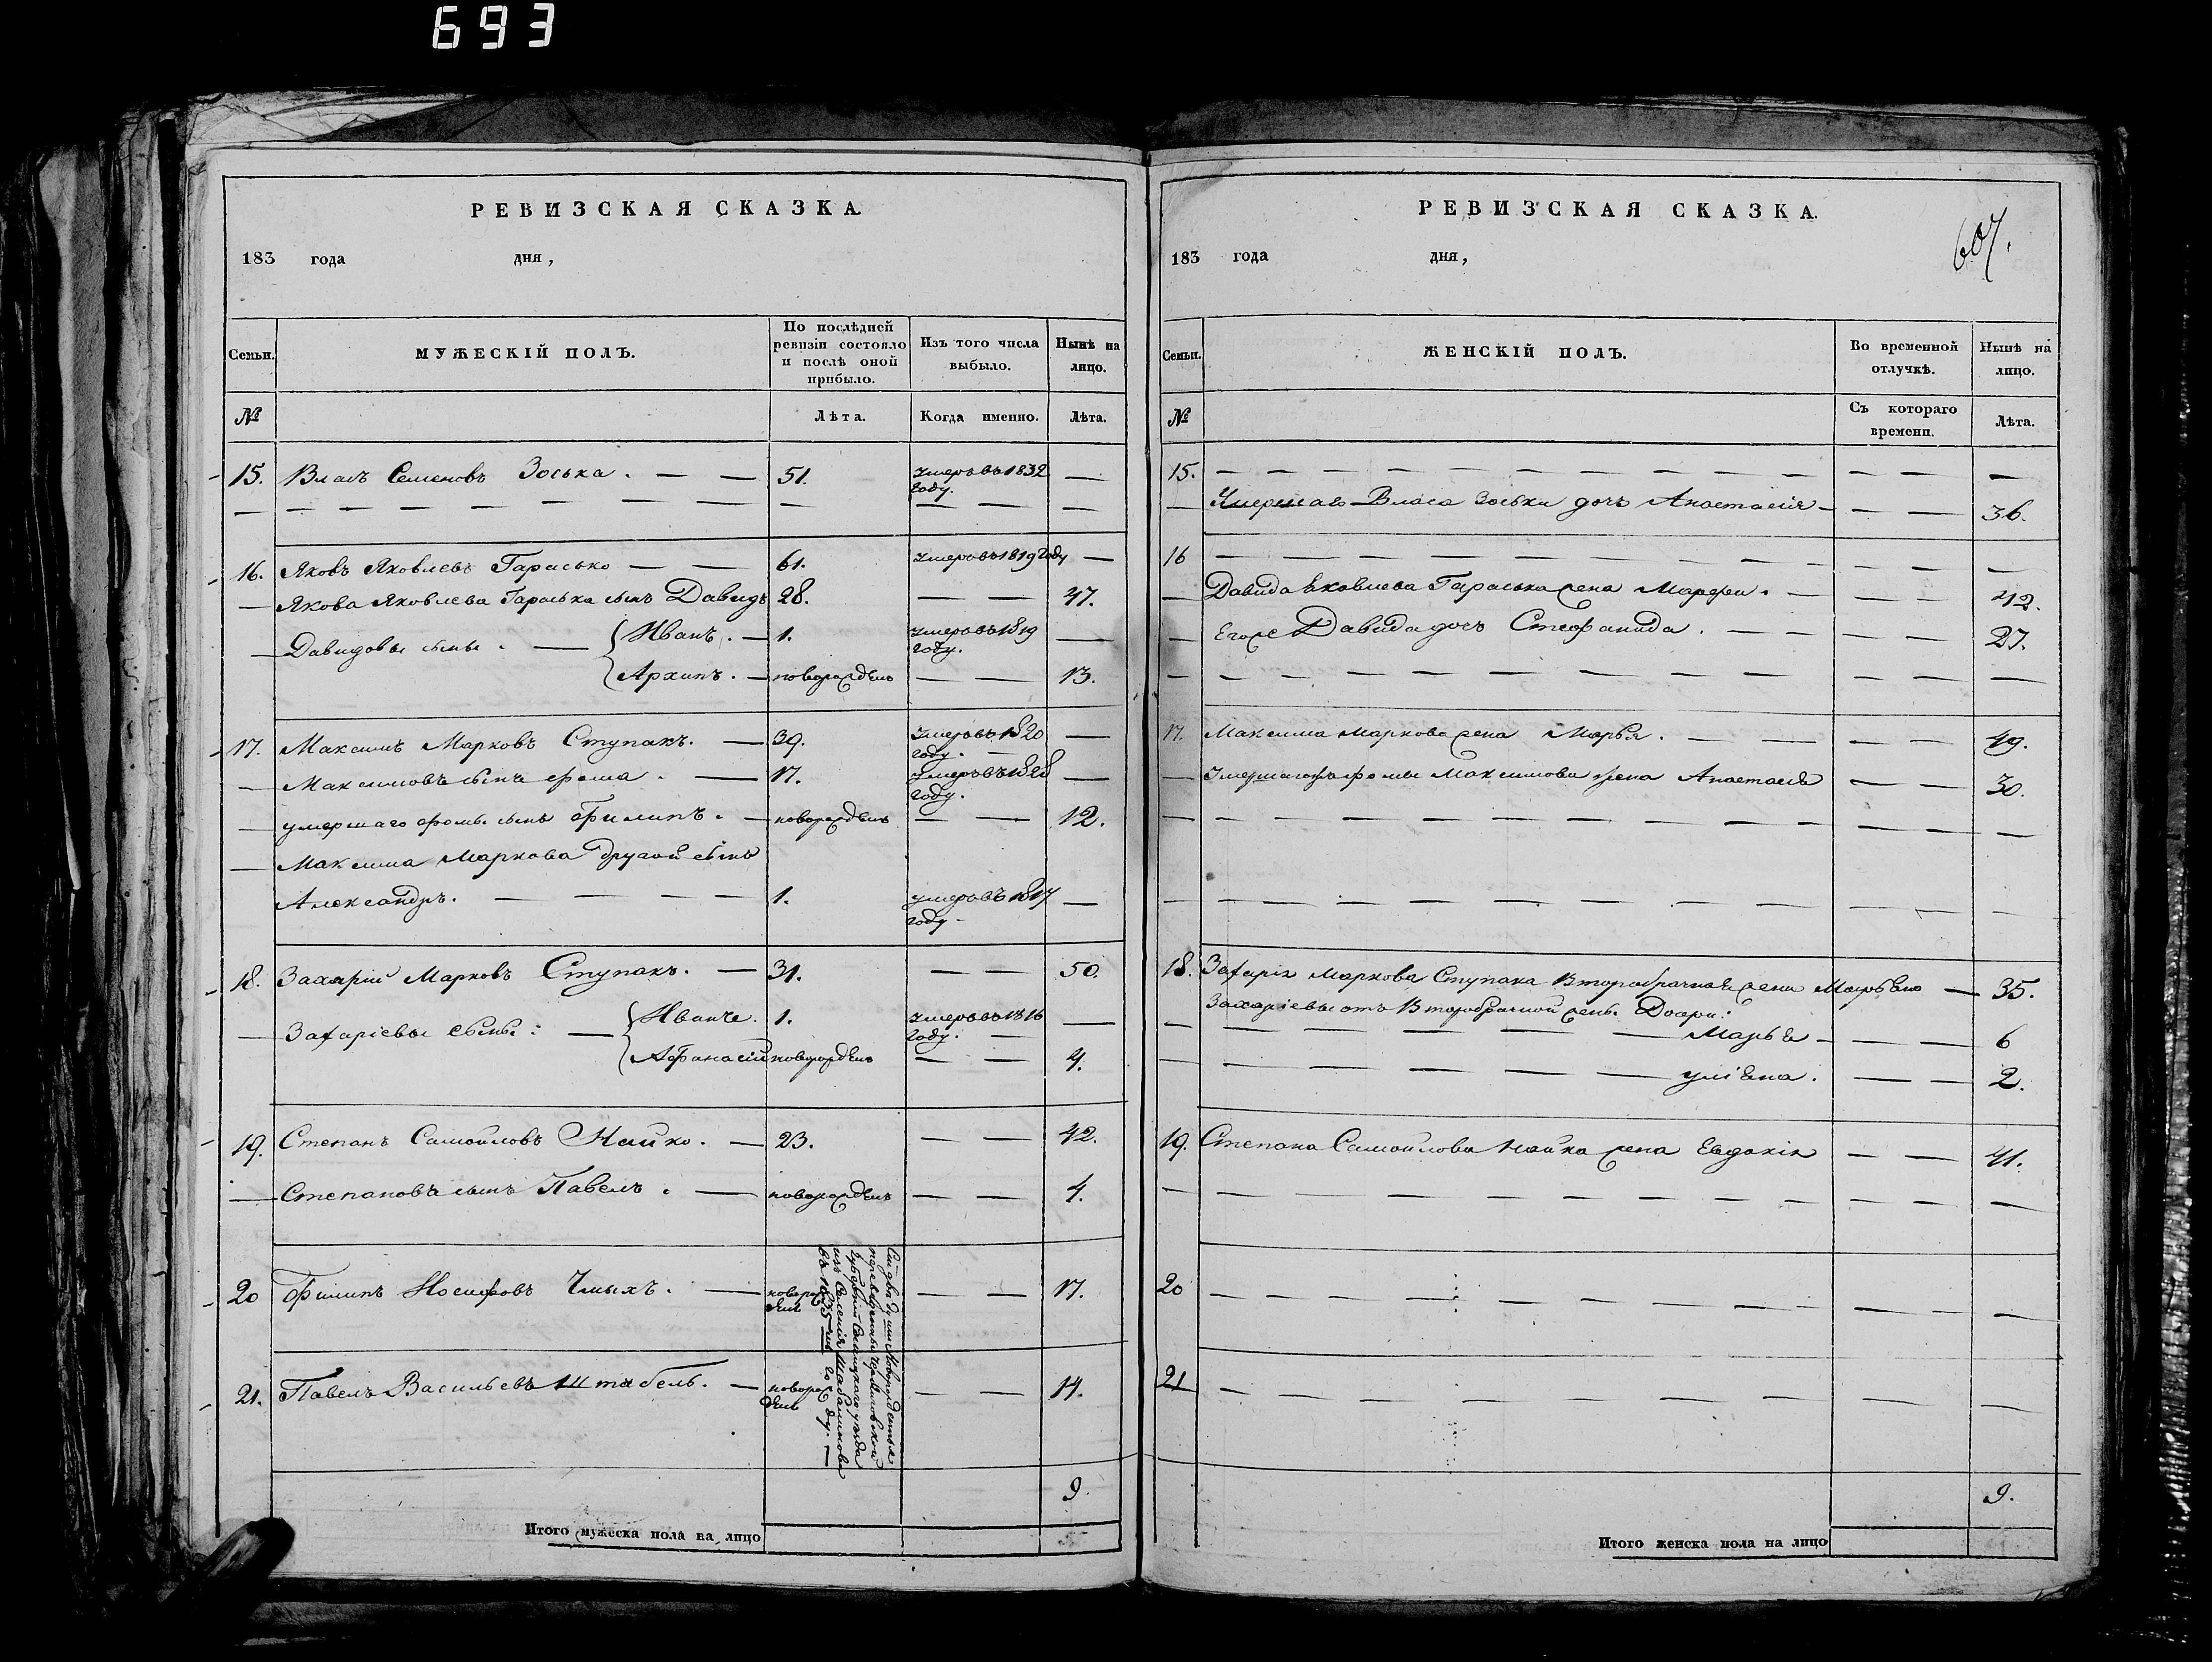 693
РЕВИЗСКАЯ СКАЗКА.
183 года дня,
Семьи.
МУЖЕСКІЙ ПОЛЪ.
По послѣдней ревизіи состояло и послѣ оной прибыло.
Изъ того числа выбыло.
Нынѣ на лицо.
№
Лѣта.
Когда именно.
Лѣта.
15. Власъ Семеновъ Зоська. 51. умеръ въ 1832 году.
16. Яковъ Яковлевъ Гарасько 61. умеръ въ 1819 году
Якова Яковлева Гараська сынъ Давидъ 28. 47.
Давидовы сыны. Иванъ. 1. умеръ въ 1819 году.
Архипъ. новорожденъ 13.
17. Максимъ Марковъ Ступакъ. 39. умеръ въ 1820 году.
Максимовъ сынъ Фома. 17. умеръ въ 1828 году.
умершаго Фомы сынъ Филипъ. новорожденъ 12.
Максима Маркова другой сынъ
Александръ. 1. умеръ въ 1817 году
18. Захарій Марковъ Ступакъ. 31. 50.
Захаріевы сыны: Иванъ. 1. умеръ въ 1816 году.
Афанасій новорожденъ 4.
19. Степанъ Самойловъ Найко. 23. 42.
Степановъ сынъ Павелъ. новорожденъ 4.
20 Филипъ Иосифовъ Чмыхъ. новорожденъ 17.
21. Павелъ Васильевъ Штабель. новорожденъ 14.
Сіи двѣ души новорожденныя
переведены
губерніи уѣзда
изъ селенія
въ 1825 году.
9.
Итого мужеска пола на лицо
РЕВИЗСКАЯ СКАЗКА.
607.
183 года дня,
Семьи.
ЖЕНСКІЙ ПОЛЪ.
Во временной отлучкѣ.
Нынѣ на лицо.
№
Съ котораго времени.
Лѣта.
15.
Умершаго Власа Зоськи дочь Анастасія 36.
16
Давида Яковлева Гараська жена Марфа. 42.
Егоже Давида дочь Стефанида. 27.
17. Максима Маркова жена Марья. 49.
Умершаго Фомы Максимова жена Анастасія 30.
18. Захарія Маркова Ступака второбрачная жена Марьяна 35.
Захаріевы отъ второбрачной жены дочери:
Марья 6
Уліяна. 2.
19. Степана Самойлова Найка жена Евдокія 41.
20
21
9.
Итого женска пола на лицо